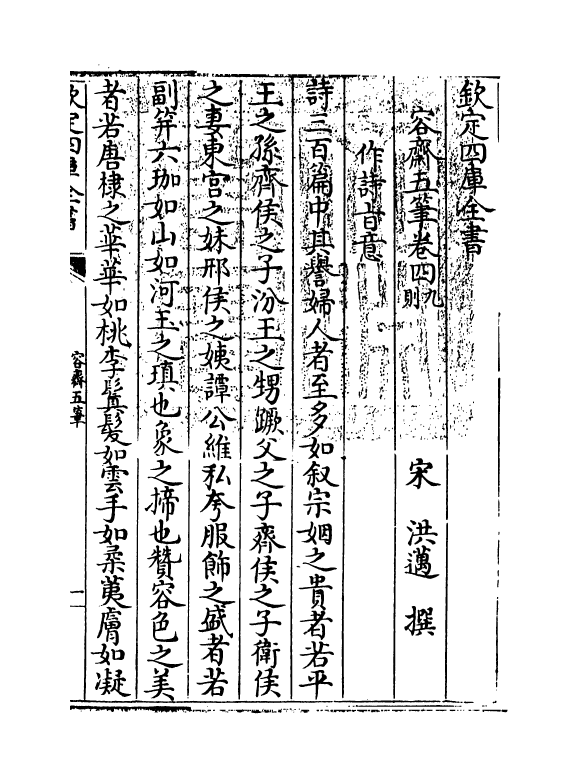 欽定四庫全書
容齋五筆卷四九則
宋 洪邁 撰
作詩旨意
詩三百篇中其譽婦人者至多如叙宗姻之貴者若平
王之孫齊侯之子汾王之甥蹶父之子齊侯之子衛侯
之妻東宮之妹邢侯之姨譚公維私夸服飾之盛者若
副笄六珈如山如河玉之瑱也象之揥也贊容色之美
者若唐棣之華華如桃李鬒髮如雲手如柔荑膚如凝
欽定四庫全書
容齋五筆
一